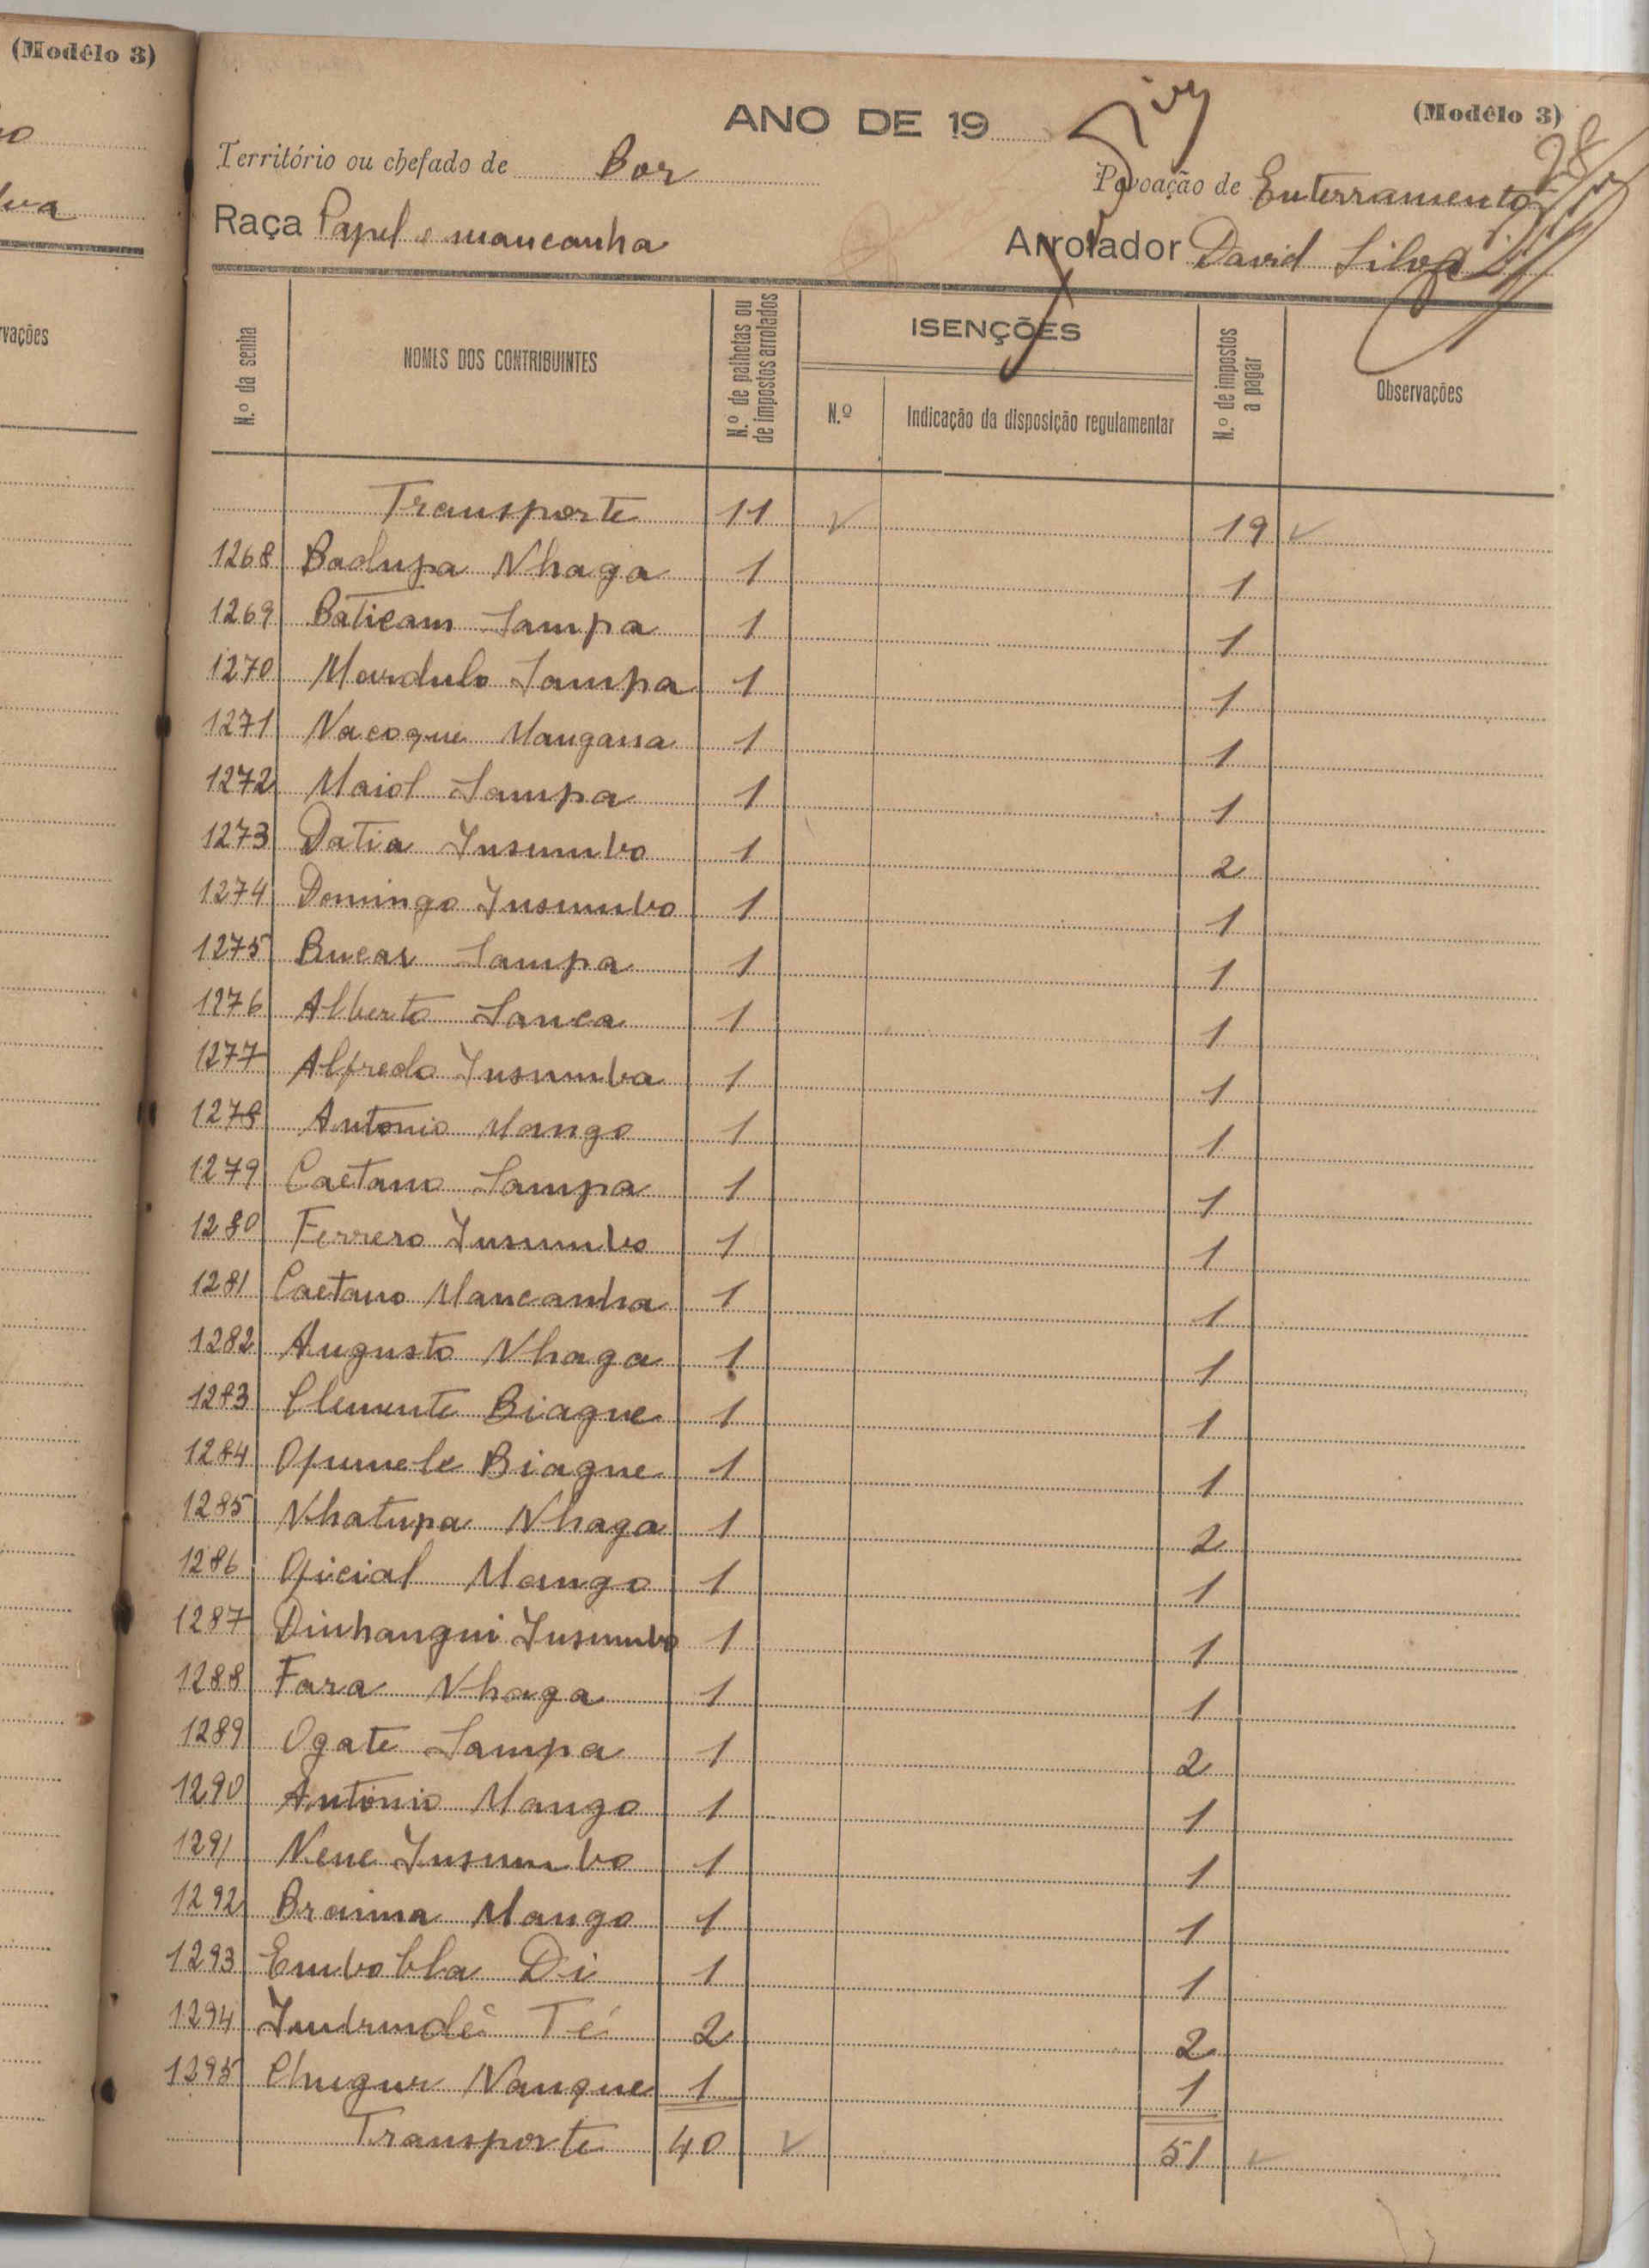 (Modêlo 3)
lva
vações
ANO DE 19
(Modêlo 3)
Território ou chefado de Bor
Povoação de Enterramento
Raça Papel e mancanha
Arrolador David Silva
N.º da senha
NOMES DOS CONTRIBUINTES
N.º de palhotas ou de impostos arrolados
ISENÇÕES
N.º
Indicação da disposição regulamentar
N.º de impostos a pagar
Observações
Transporte 11 19
1268 Badupa Nhaga 1 1
1269 Baticam Sampa 1 1
1270 Mardulo Sampa 1 1
1271 Nacoque Mangassa 1 1
1272 Maiol Sampa 1 1
1273 Datia Insumbo 1 2
1274 Domingo Insumbo 1 1
1275 Bucar Sampa 1 1
1276 Alberto Sanca 1 1
1277 Alfredo Insumba 1 1
1278 Antonio Mango 1 1
1279 Caetano Sampa 1 1
1280 Ferrero Insumbo 1 1
1281 Caetano Mancanha 1 1
1282 Augusto Nhaga 1 1
1283 Clemente Biague 1 1
1284 Ofumele Biague 1 1
1285 Nhatupa Nhaga 1 2
1286 Oficial Mango 1 1
1287 Dinhangui Insumbo 1 1
1288 Fara Nhaga 1 1
1289 Ogate Sampa 1 2
1290 António Mango 1 1
1291 Nene Insumbo 1 1
1292 Braima Mango 1 1
1293 Embobla Di 1 1
1294 Imbundé Té 2 2
1295 Chugur Nanque 1 1
Transporte 40 51